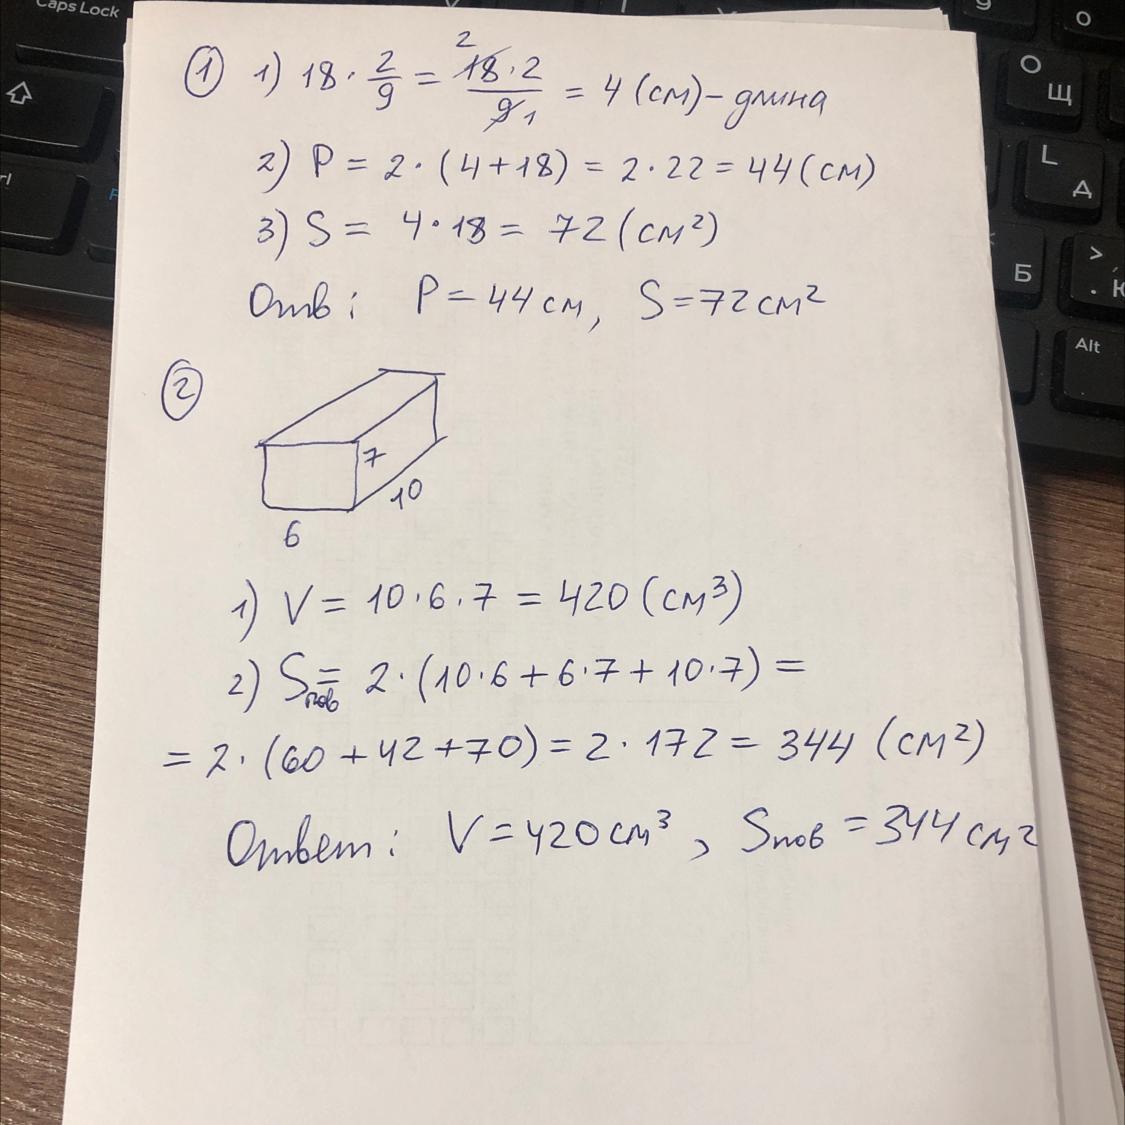 Caps Lock
О
Щ
L
Д
Б
>
.
Ю
Alt
① 1) 18 · 2/9 = 18 · 2 / 9 = 4 (см) – длина
2
1
2) P = 2 · (4 + 18) = 2 · 22 = 44 (см)
3) S = 4 · 18 = 72 (см²)
Отв: P = 44 см, S = 72 см²
②
7
10
6
1) V = 10 · 6 · 7 = 420 (см³)
2) Sпов = 2 · (10 · 6 + 6 · 7 + 10 · 7) =
= 2 · (60 + 42 + 70) = 2 · 172 = 344 (см²)
Ответ: V = 420 см³, Sпов = 344 см²